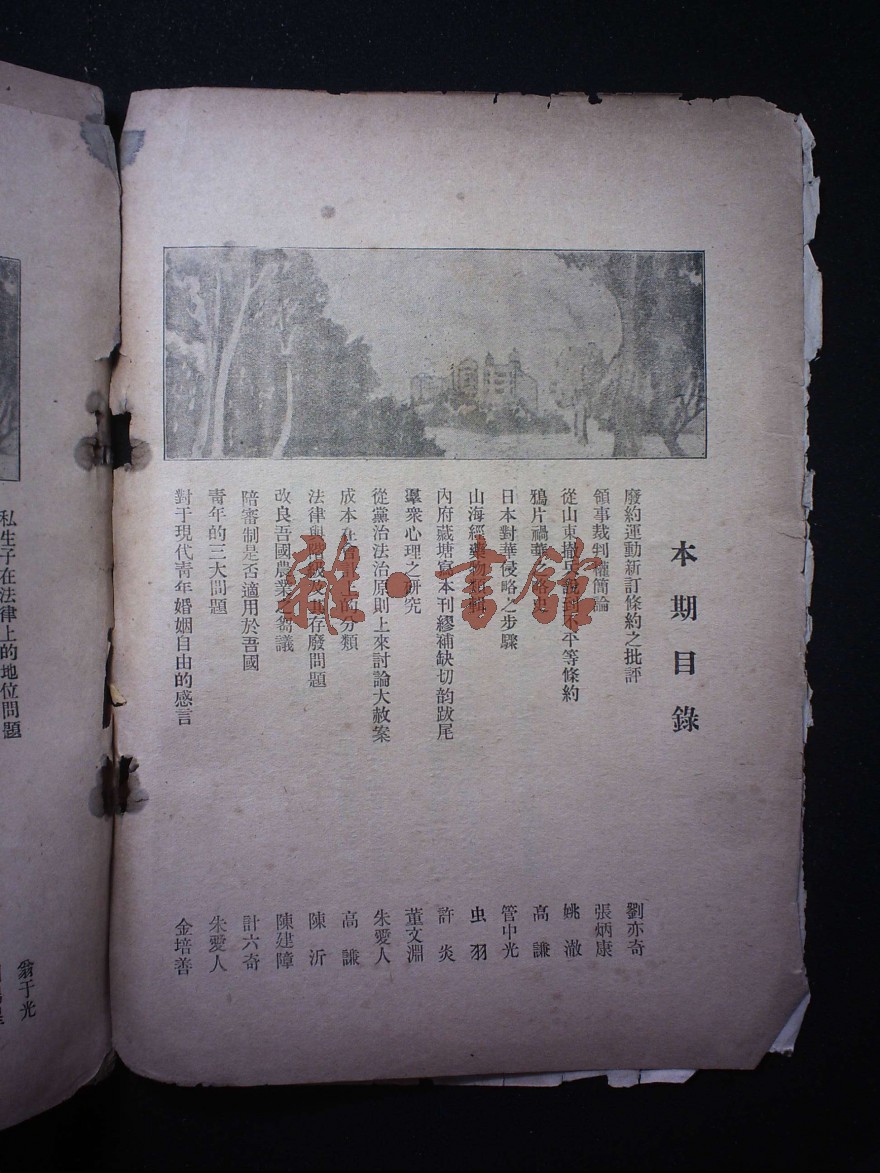 本期目錄
廢約運動新訂條約之批評 劉亦奇
領事裁判權簡論 張炳康
從山東撤兵說到不平等條約 姚澈
鴉片禍華之略史 高謙
日本對華侵略之步驟 管中光
山海經藥物類輯 虫羽
內府藏塘寫本刊繆補缺切韵跋尾 許炎
羣衆心理之研究 董文淵
從黨治法治原則上來討論大赦案 朱愛人
成本在會計上的分類 高謙
法律與階級及其存廢問題 陳沂
改良吾國農業之芻議 陳建障
陪審制是否適用於吾國 計六奇
青年的三大問題 朱愛人
對于現代青年婚姻自由的感言 金培善
私生子在法律上的地位問題 翁于光
雜·書舘